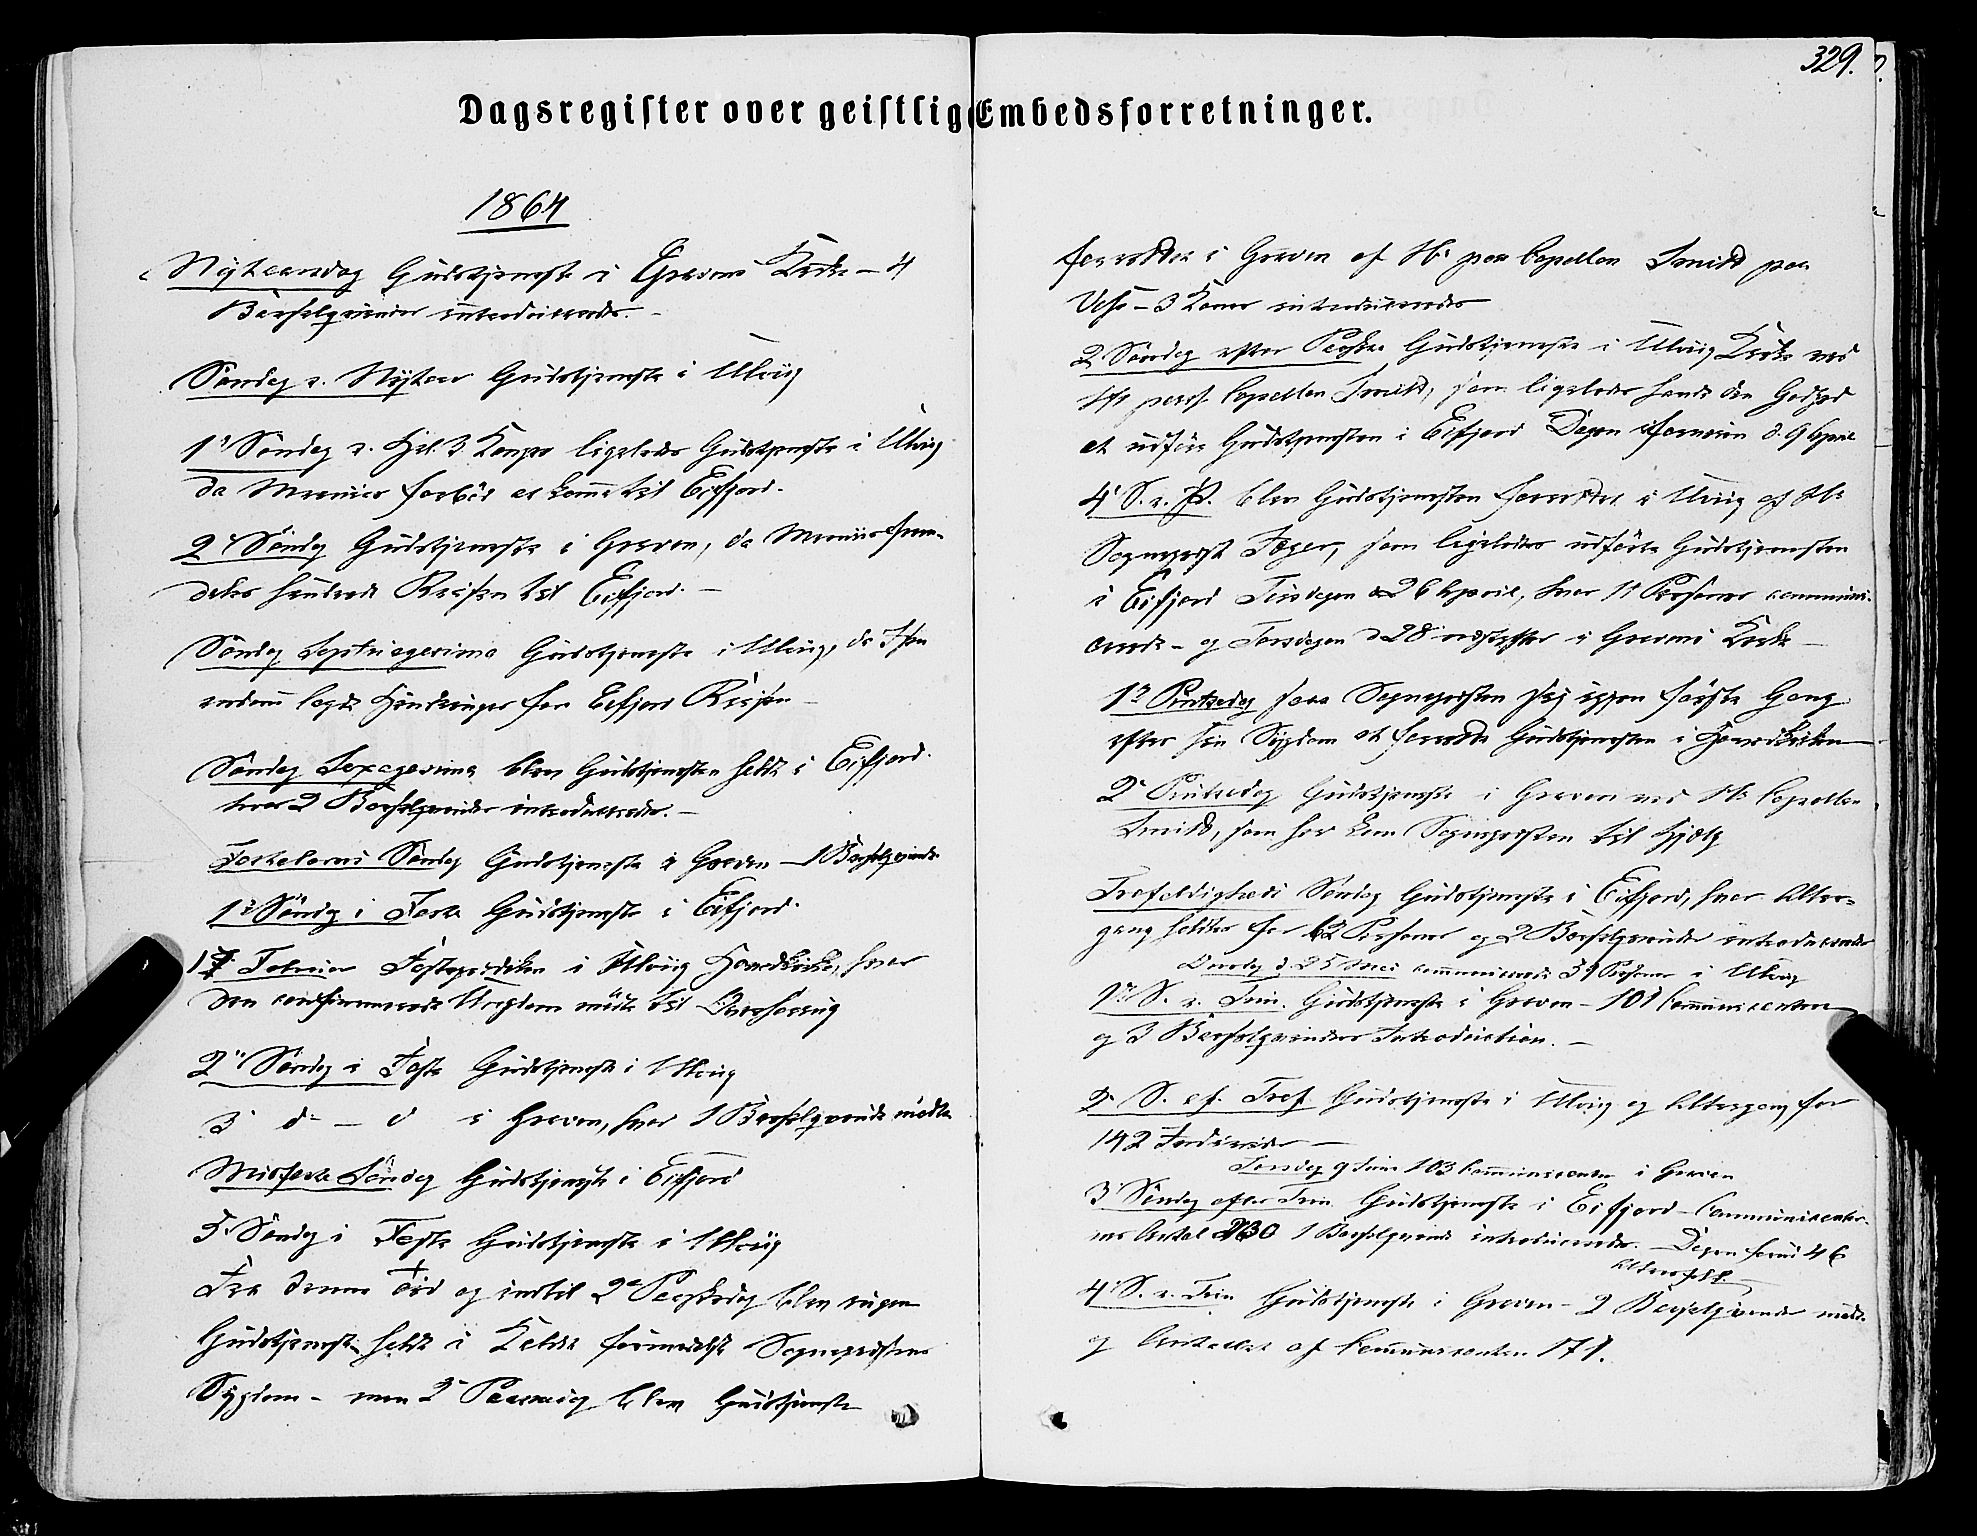 329.
Dagsregister over geistlige Embedsforretninger.
1864
Nytaarsdag Gudstjeneste i Gravens Kirke – 4
Barselqvinder introduceredes. –
Søndag e. Nytaar Gudstjeneste i Ulvig
1ste Søndag e. Hel. 3 Konger ligeledes Gudstjeneste i Ulvig
da Menuis forbød at komme til Eifjord.
2 Søndag Gudstjeneste i Graven, da Menuis frem-
deles hindrede Reisen til Eifjord. –
Søndag Septuagesima Gudstjeneste i Ulvig, da Isen
endnu lagde Hindringer for Eifjord Reisen –
Søndag Sexagesima blev Gudstjenesten holdt i Eifjord.
hvor 2 Barselqvinder introduceredes. –
Fastelavns Søndag Gudstjeneste i Graven – 1 Barselqvinde
1ste Søndag i Faste Gudstjeneste i Eifjord.
17 Februar Fasteprædiken i Ulvig Hovedkirke, hvor
den confirmerede Ungdom mødte til Overhøring
2den Søndag i Faste Gudstjeneste i Ulvig
3 do – d i Graven, hvor 1 Barselqvinde mødte
Midfaste Søndag Gudstjeneste i Eifjord
5 Søndag i Faste Gudstjeneste i Ulvig
Fra denne Tid og indtil 2den Paaskedag blev ingen
Gudstjeneste holdt i Kaldet formedelst Sognepræstens
Sygdom – men 2 blev Gudstjeneste
forrettet i Graven af Hr. pers. Capellan Smidt paa
Voss – 3 Koner introduceredes
2 Søndag efter Paaske Gudstjeneste i Ulvig Kirke ved
Hr pers. Capellan Smidt, som ligeledes havde den Godhed
at udføre Gudstjenesten i Eifjord Dagen forveien d. 9 April
4 S. e. P. blev Gudstjenesten forrettet i Ulvig af Hr
Sognepræst, som ligeledes udførte Gudstjenesten
i Eifjord Tirsdagen d 26 April, hvor 11 Personer communi-
cerede – og Torsdagen d 28 næstefter i Gravens Kirke –
1ste Pintsedag saae Sognepræsten sig igjen første Gang
efter sin Sygdom at forrette Gudstjenesten i Hovedkirken –
2 Pintsedag Gudstjeneste i Graven ved Hr Capellan
Smidt, som her kom Sognepræsten til Hjælp
Trefoldigheds Søndag Gudstjeneste i Eifjord, hvor Alter-
gang holdtes for 62 Personer og 2 Barselqvinder introduceredes
Onsdag d 25 Mai communicerede 39 Personer i Ulvig
1ste S. e. Trin. Gudstjeneste i Graven – 101 Communicantere
og 3 Barselqvinders Introduction. –
2 S. ef. Tref. Gudstjeneste i Ulvig og Altergang for
142 Individer –
Torsdag 9 Juni 103 Communicanter i Graven
3 Søndag efter Trin Gudstjeneste i Eifjord – Communicanter-
nes Antal 130 1 Barselqvinde introduceredes. – Dagen forud 46
4 S. e. Trin Gudstjeneste i Graven – 2 Barselqvinder mødte
og Antallet af Communicanter 171.